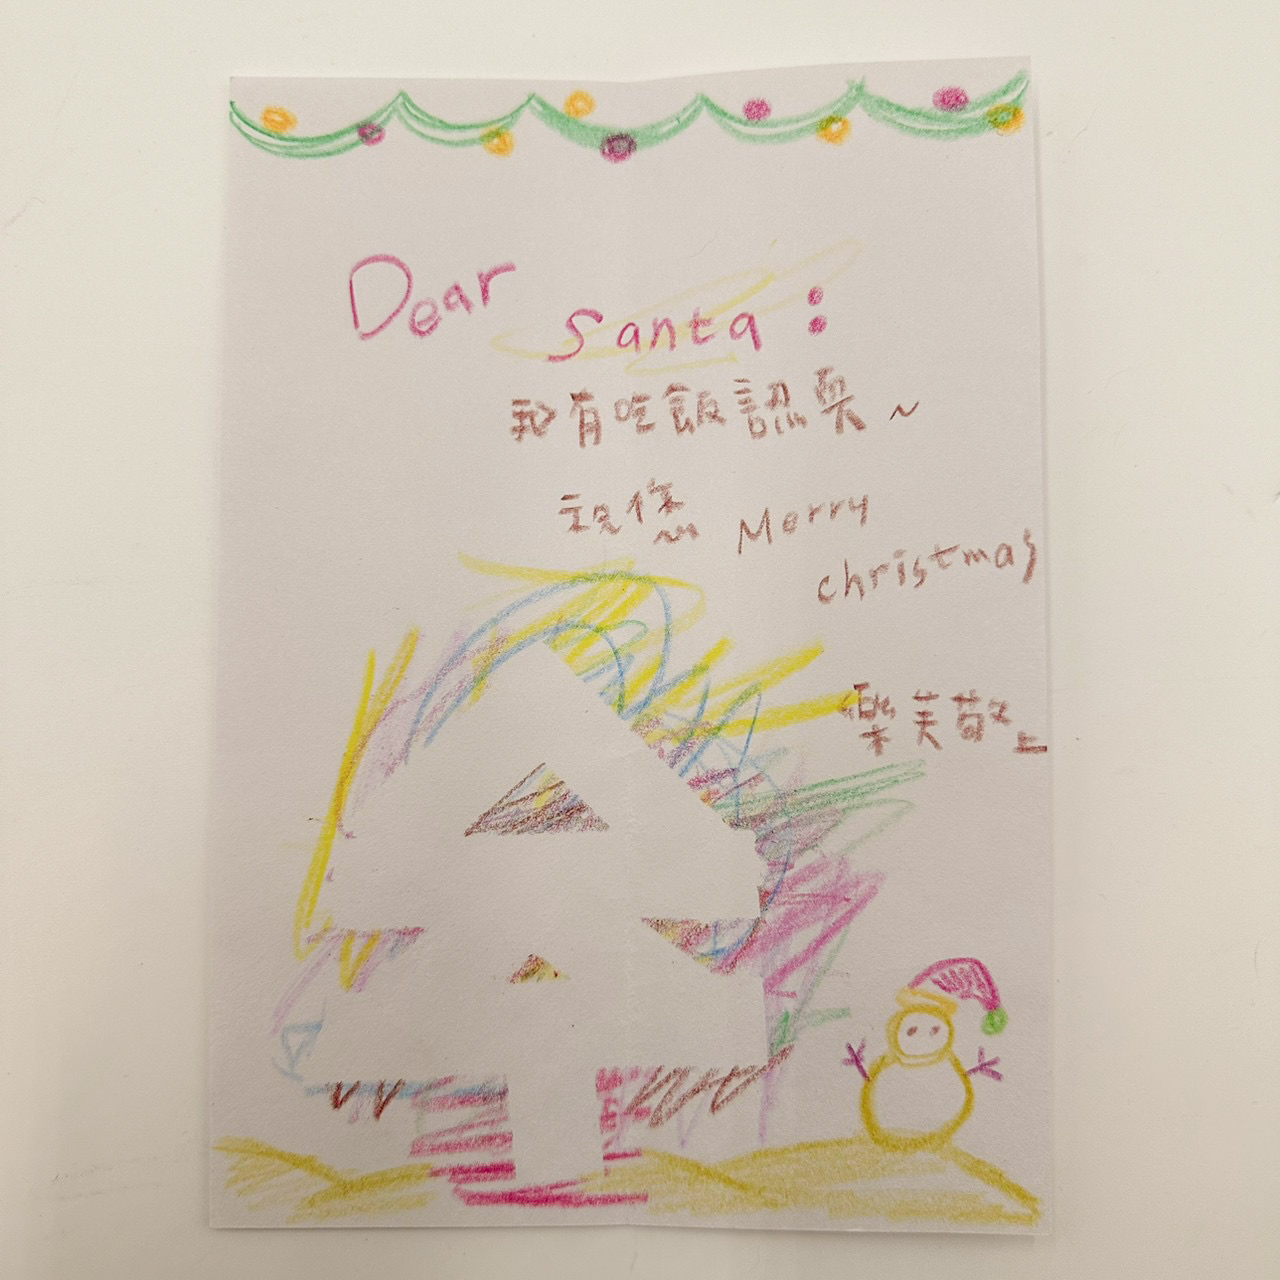 Dear
Santa:
我有吃飯認真~
祝您 Merry
christmas
樂芙敬上